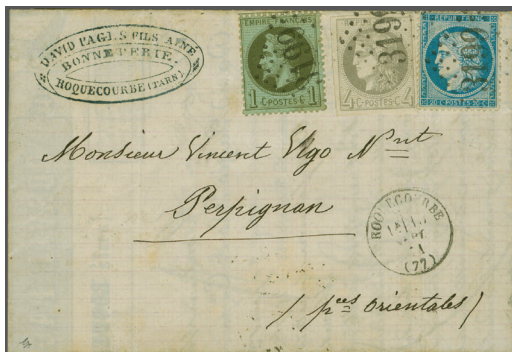 DAVID PAGÈS FILS AINÉ
BONNETERIE
ROQUECOURBE (TARN)
EMPIRE FRANÇAIS
1 C POSTES C 1
REPUB FRANC
4 C POSTES C 4
REPUB FRANC
20 C POSTES 20 C
Monsieur Vincent Vigo Nnt
Perpignan
ROQUECOURBE
(77)
(pees orientales)